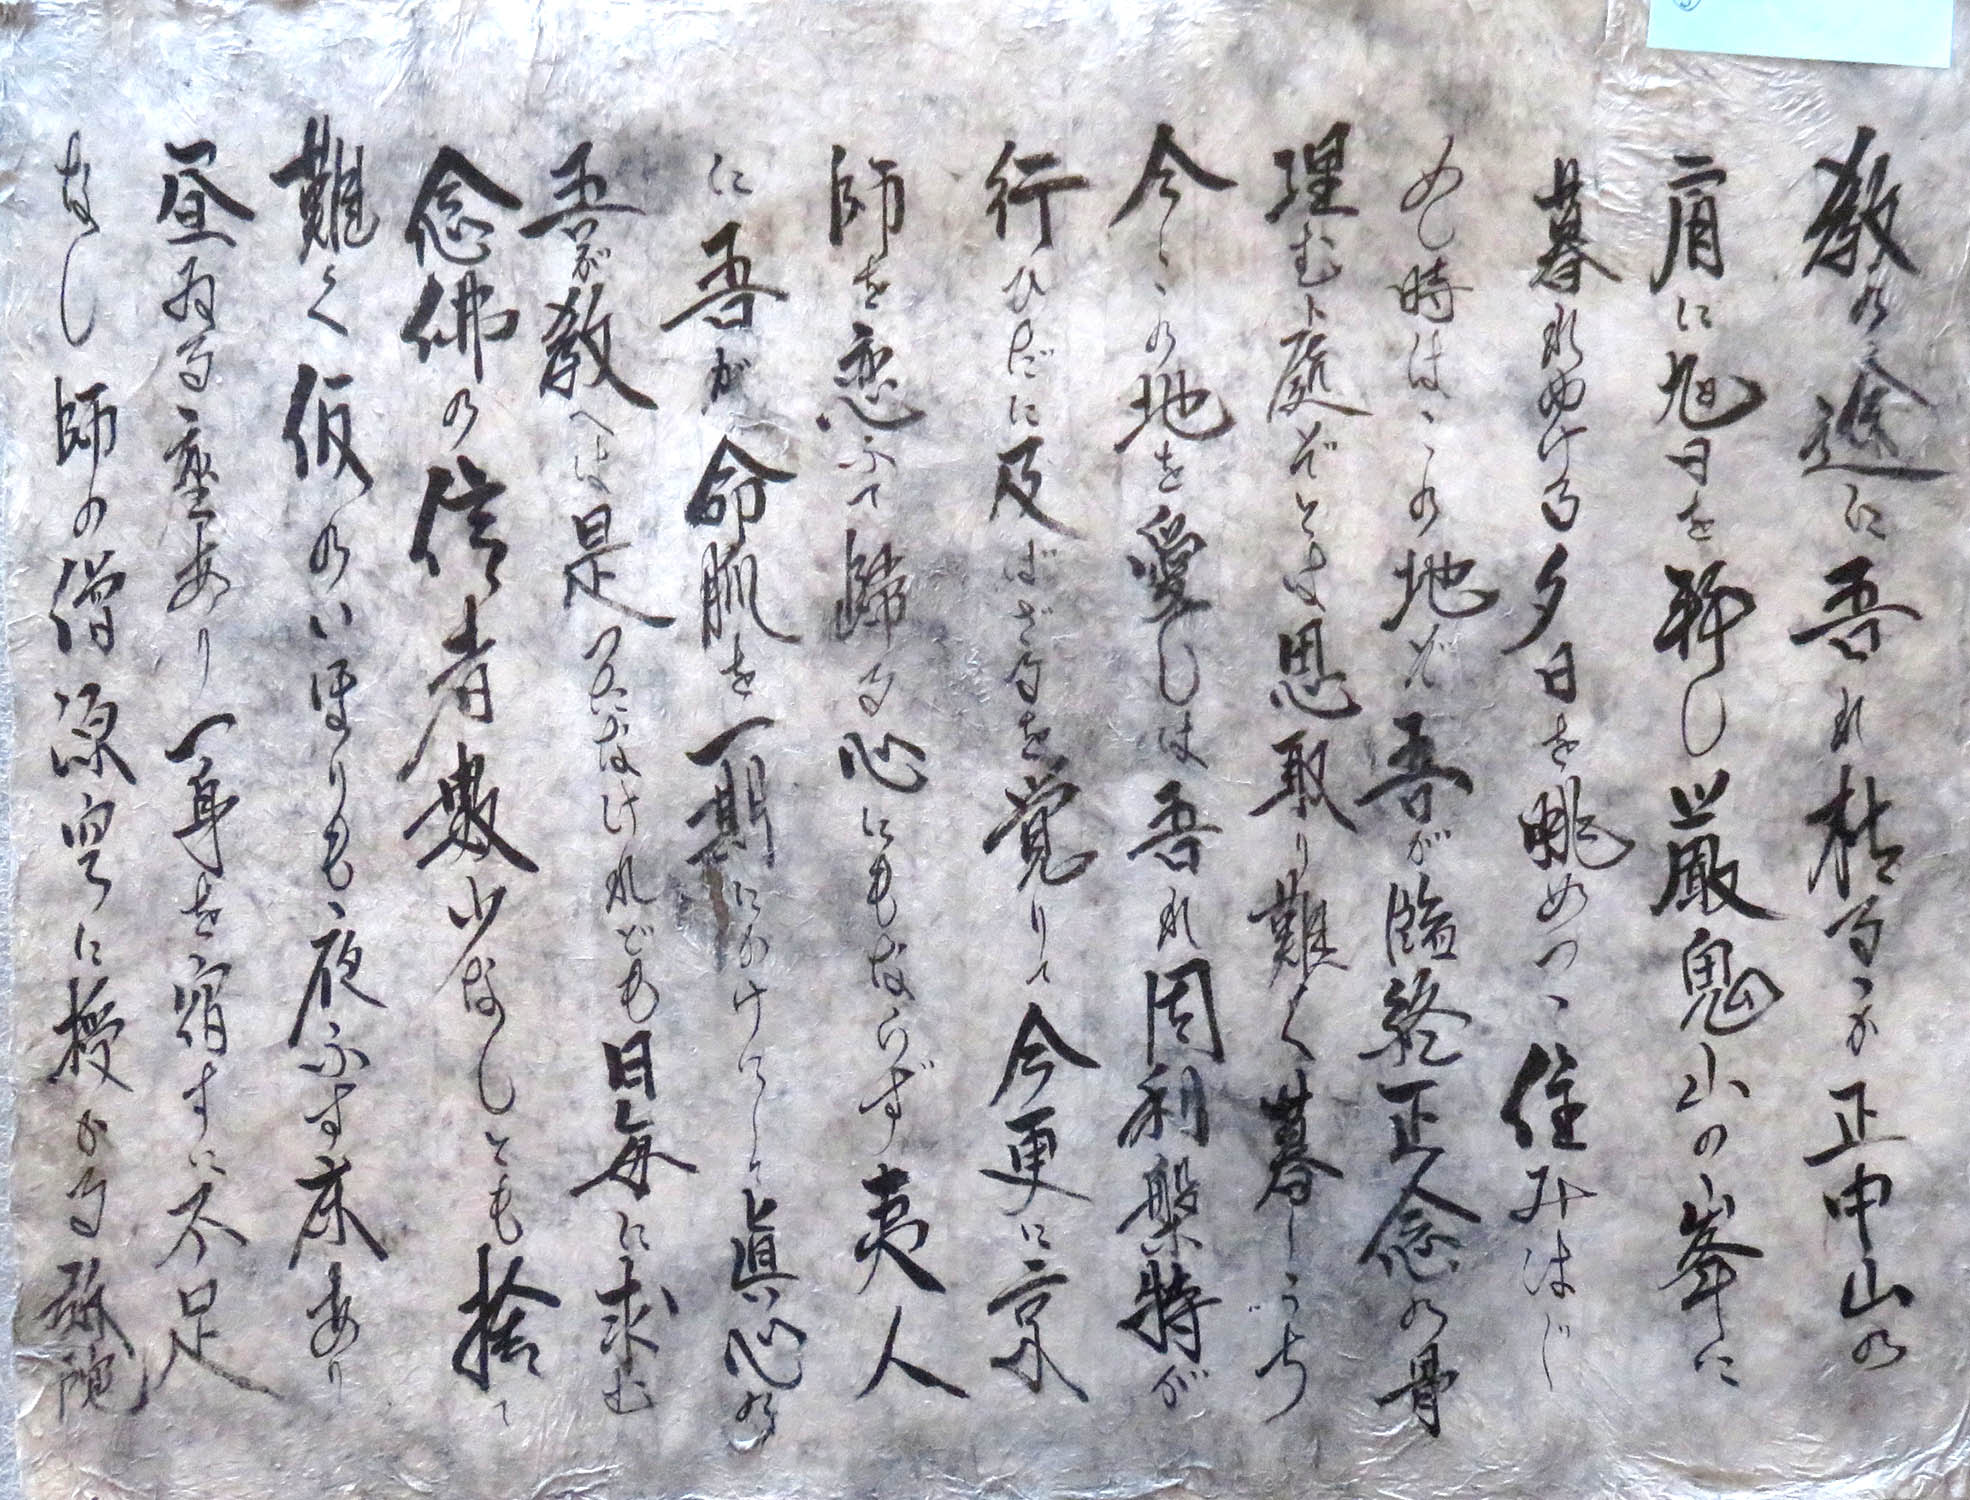 教の途に吾れ枯るゝか正中山の
肩に旭日を拝し巌鬼山の峯に
暮れぬける夕日を眺めつゝ住みはじ
めし時はこの地ぞ吾が臨終正念の骨
埋むト処ぞとは思取り難く暮しうち
今ゝこの地を愛しは吾れ周利槃特が
行ひだに及ばざるを覚りて今更に京
師を恋ふて帰る心にもならず夷人
に吾が命脈を一期にかけてし眞心の
吾が教へは是つたなけれども日毎に求む
念佛の信者数少なしとも捨て
難く仮のいほりも夜ふす床あり
昼ゐる座あり一身を宿すに不足
なし 師の僧源空に授かる弥陀